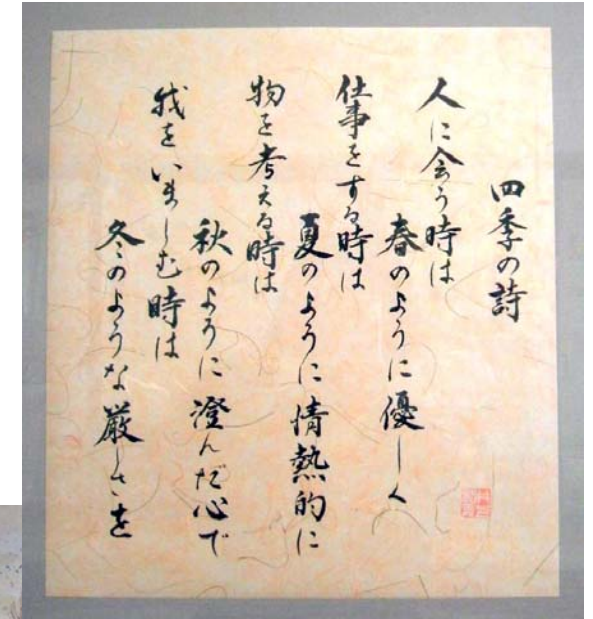 四季の詩
人に会う時は
春のように優しく
仕事をする時は
夏のように情熱的に
物を考える時は
秋のように澄んだ心で
我をいましむ時は
冬のような厳しさを